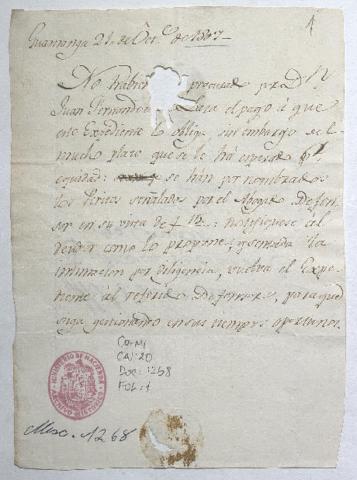 Guamanga 21. de Oct.e de 1807
No habien procurado pr. D.n
Juan Fernandez el pago á que
este Expediente lo obliga, sin embargo del
mucho plazo que se le há esperado pr.
equidad: se hán por nombrados
los Peritos señalados por el Abogdo. Defen
sor en su vista de f 12: notifiquese al
deudor como lo propone; y sentada la
intimacion por diligencia, vuelva el Expe
diente al referido Defensor, para que
siga gestionando en sus tiempos oportunos.
CO-M1
CAJ: 20
Doc: 1268
FOL: 1
MINISTERIO DE HACIENDA
ARCHIVO HISTORICO
Misc. 1268